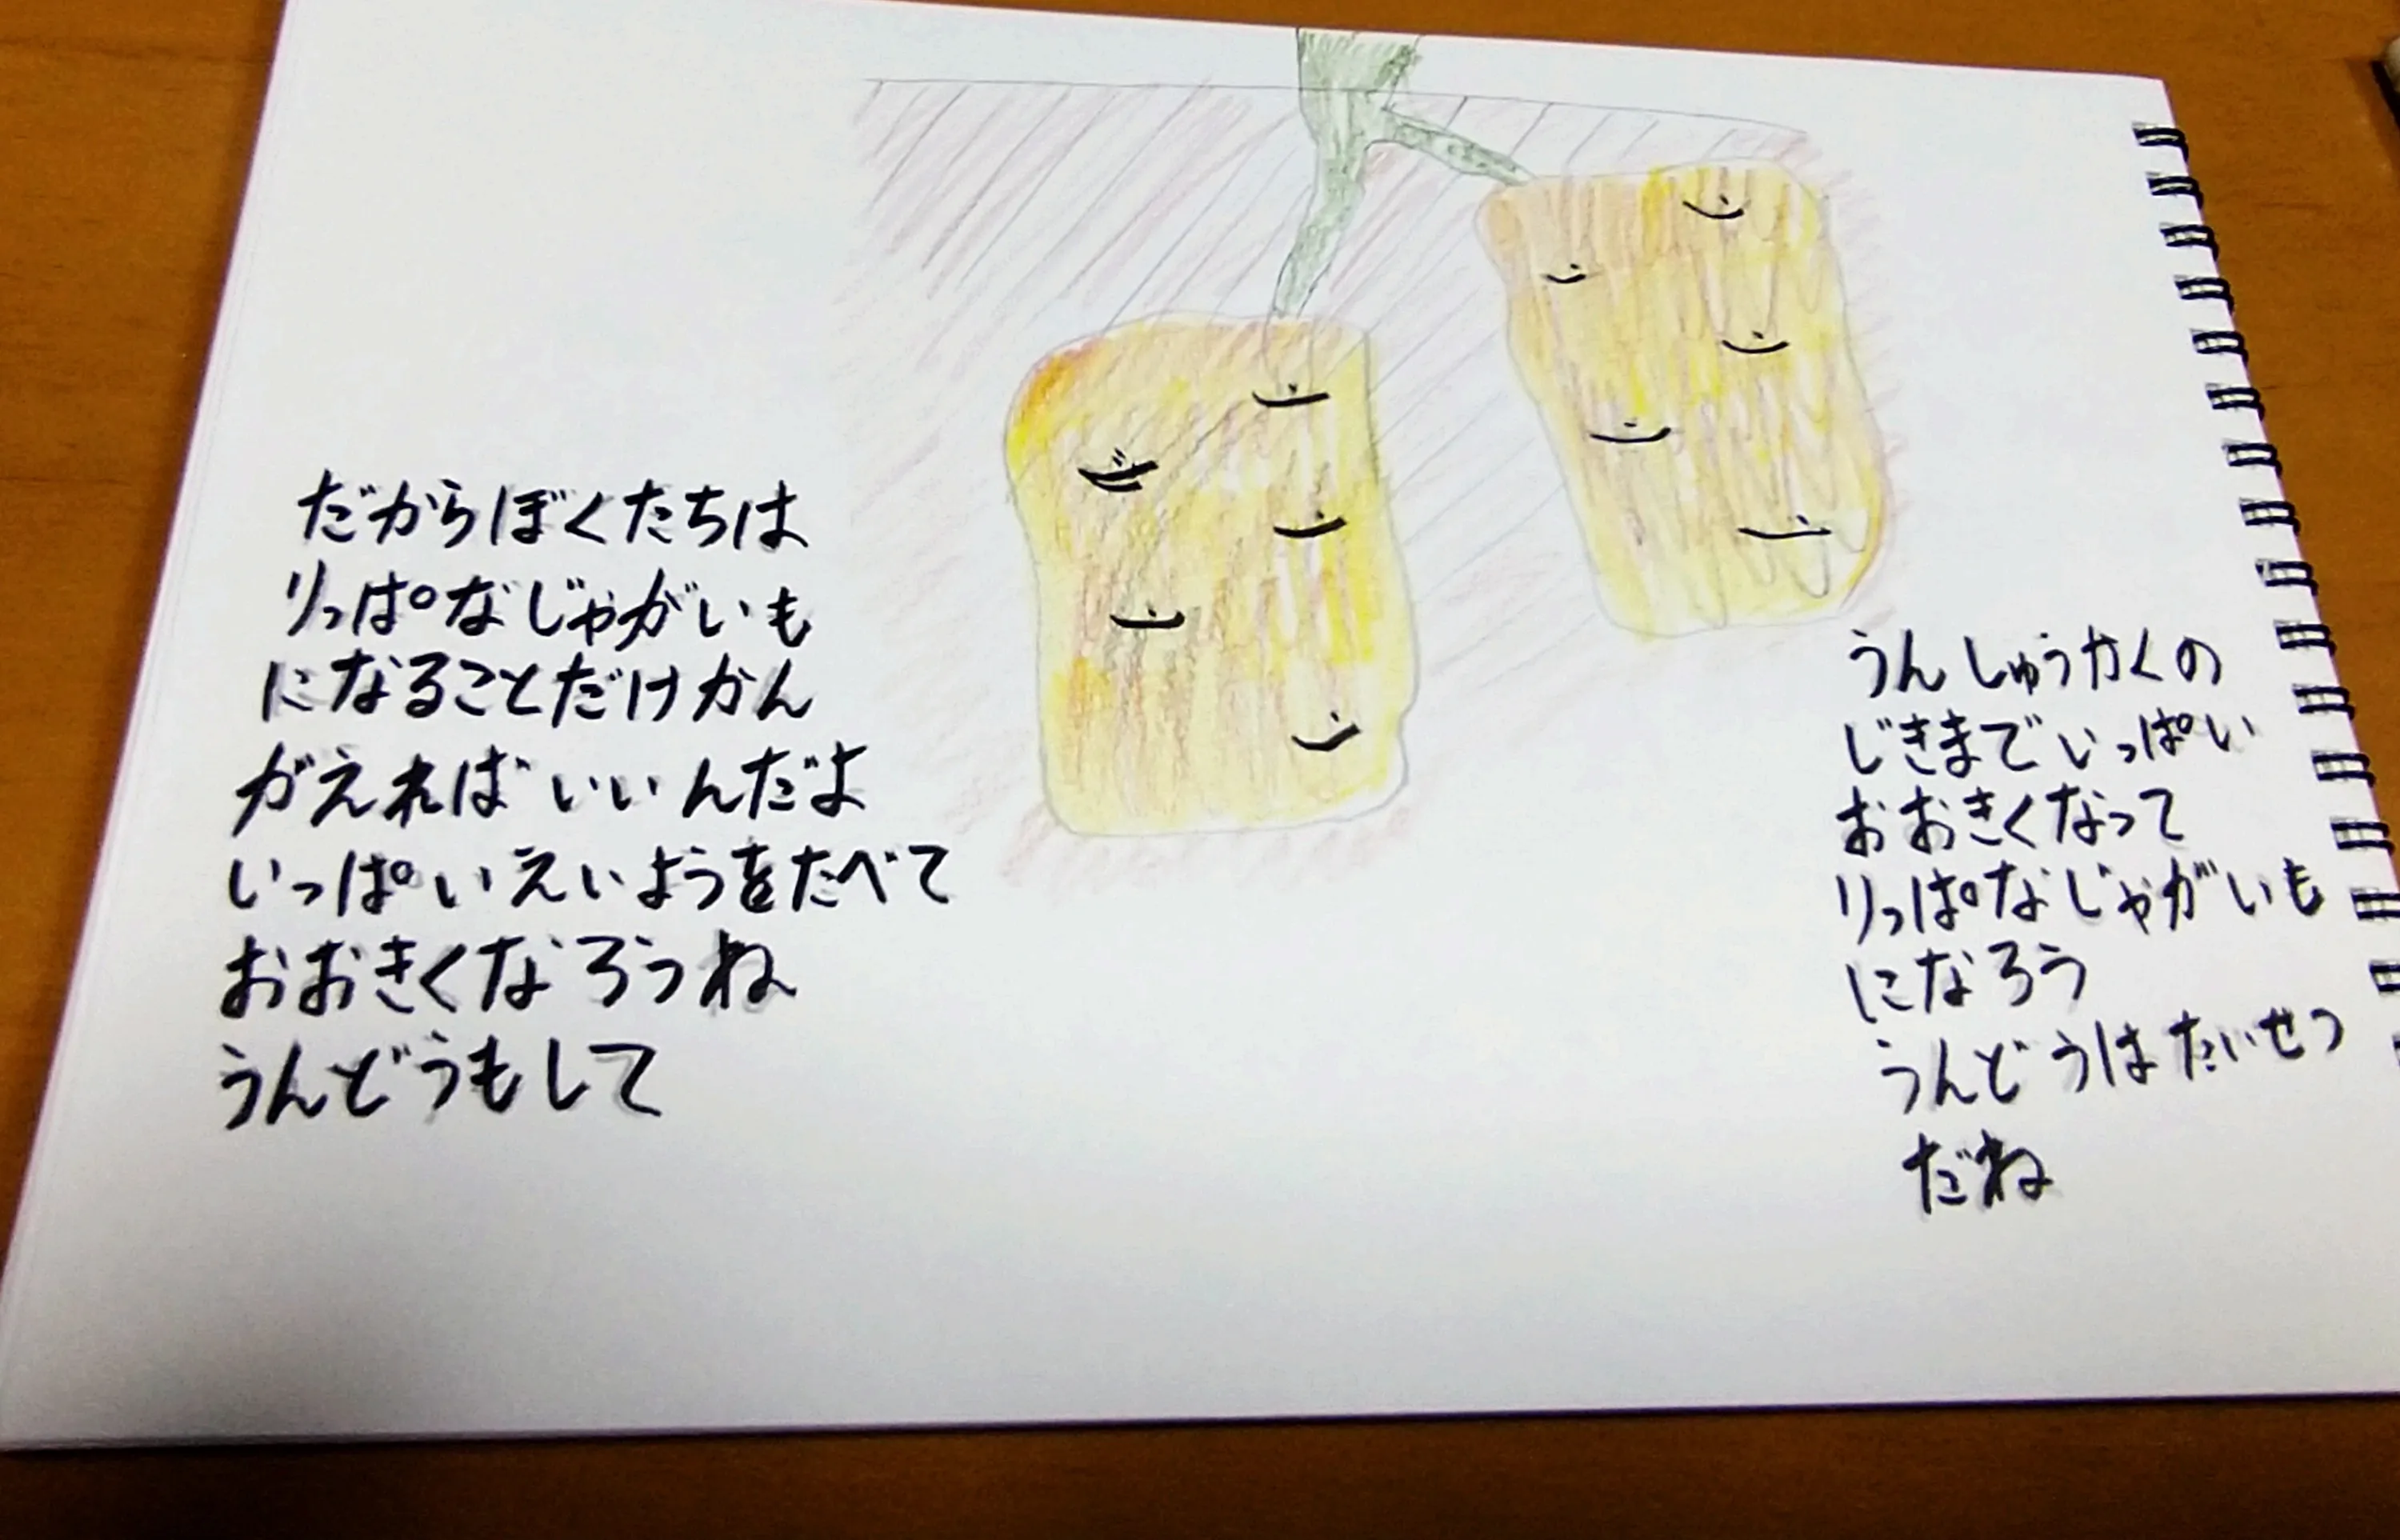 だからぼくたちは
りっぱなじゃがいも
になることだけかん
がえればいいんだよ
いっぱいえいようをたべて
おおきくなろうね
うんどうもして
うんしゅうかくの
じきまでいっぱい
おおきくなって
りっぱなじゃがいも
になろう
うんどうはたいせつ
だね